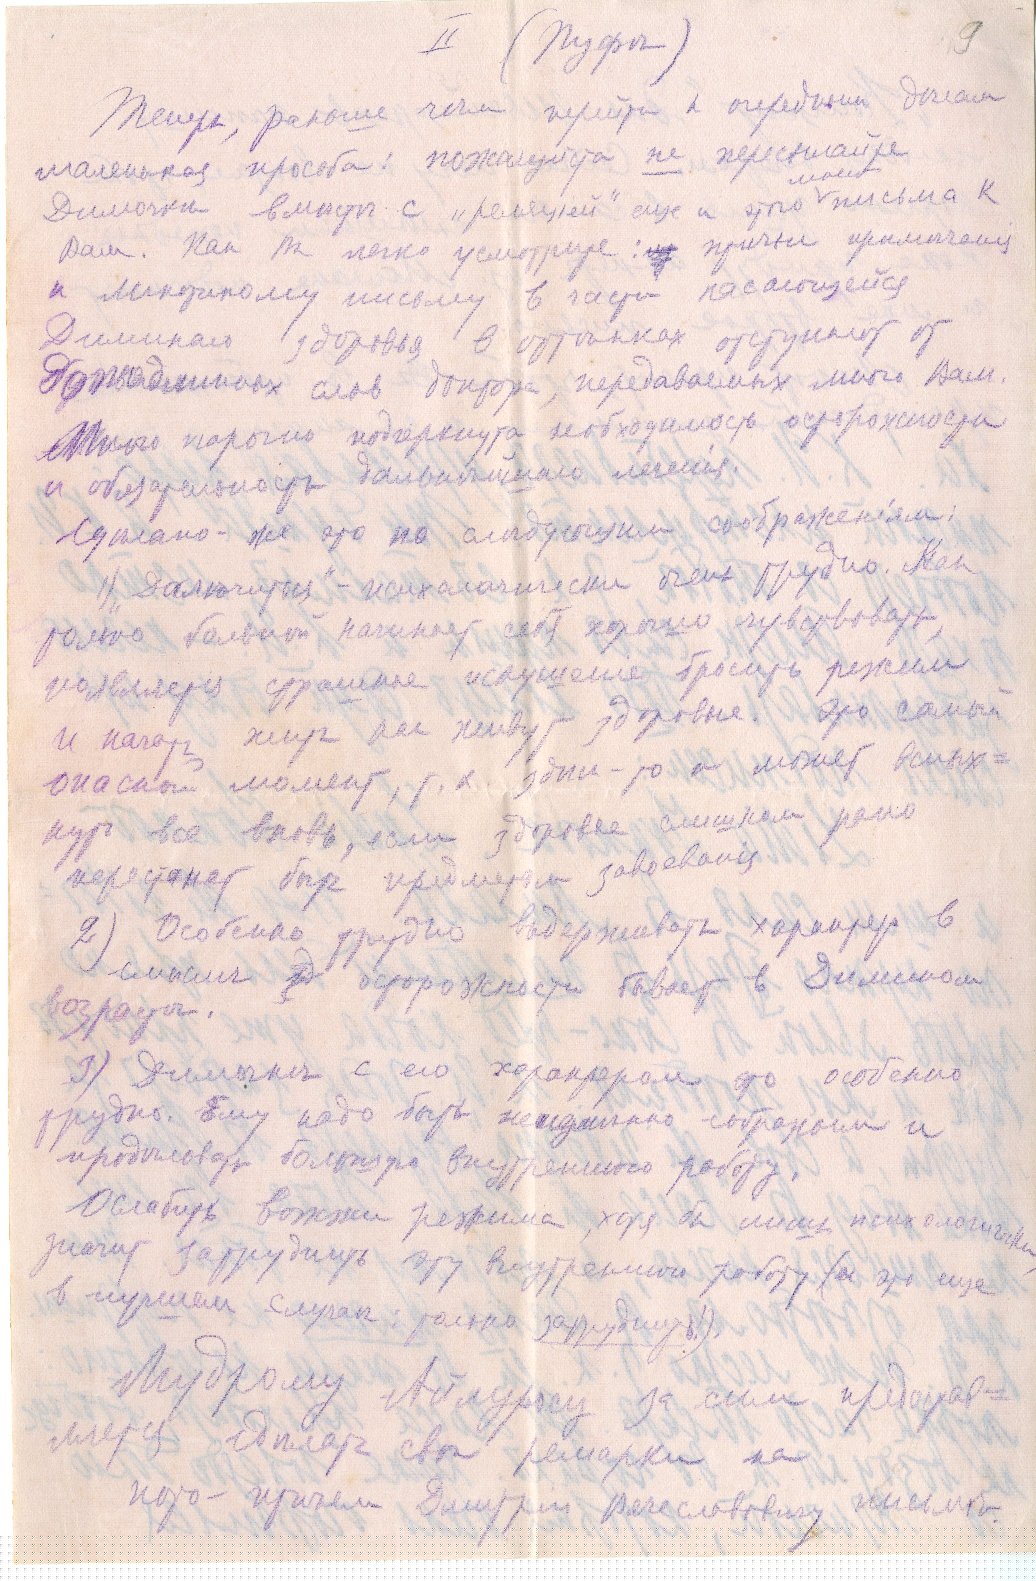 II (Пуфы) 9
Теперь, раньше чем перейти к очередным делам
маленькая просьба: пожалуйста не пересылайте
Димочке вместе с „рецензией" еще и этого моего письма к
Вам. Как Вы легко усмотрите: мои примечанія
к письму в части касающейся
Диминаго здоровья в оттенках отступают от
слов доктора, передаваемых мною Вам.
Мною нарочно подчеркнута необходимость осторожности
и обязательность дальнейшаго леченія.
Сделано-же это по следующим соображеніям:
1) „Долечиться" – психологически очень трудно. Как
только больной начинает себя хорошо чувствовать,
появляется страшное искушеніе бросить режим
и начать жить как живут здоровые. Это самый
опасный момент, т.к. здесь-то и может вспых=
нуть все вновь, если здоровье слишком рано
перестанет быть предметом завоеванія
2) Особенно трудно выдерживать характер в
смысле осторожности бывает в Димином
возрасте.
3) Димочке с его характером это особенно
трудно. Ему надо быть неизменно собранным и
проделовать большую внутреннюю работу.
Ослабить вожжи режима, хотя бы лишь психологически,
значит затруднить эту внутреннюю работу (и это еще
в лучшем случае: только затруднить!).
Мудрому за сим предостав=
ляется сделать свои ремарки на
Дмитрію Вячеславовичу письмо.